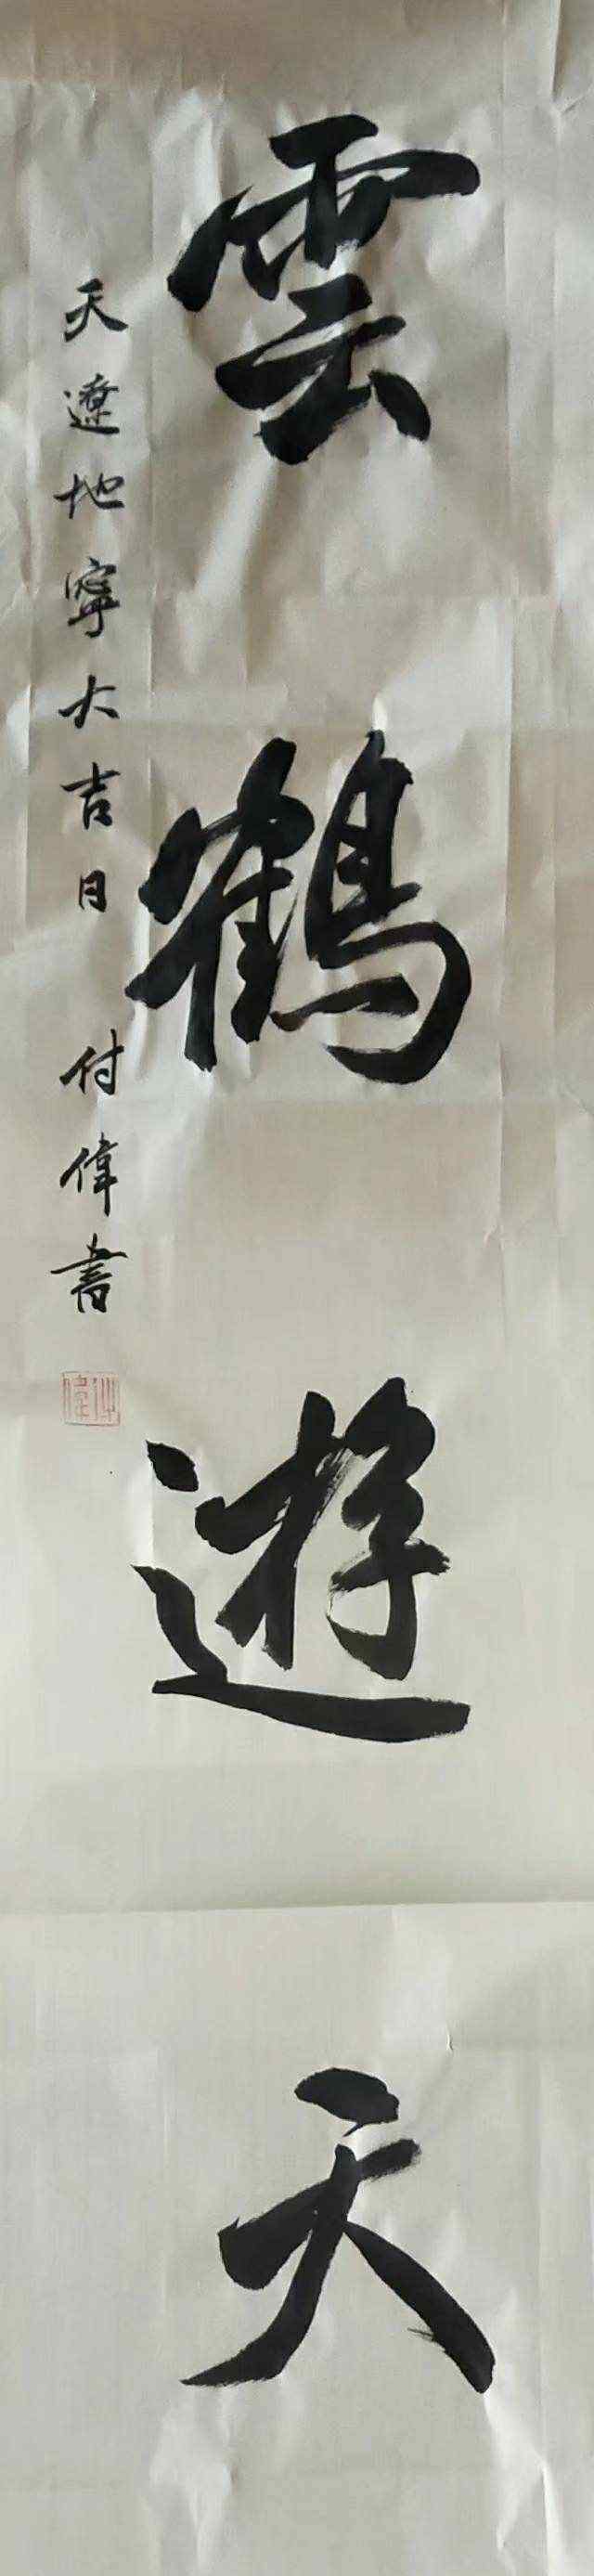 雲鶴遊天
天遼地寧大吉日 付偉書